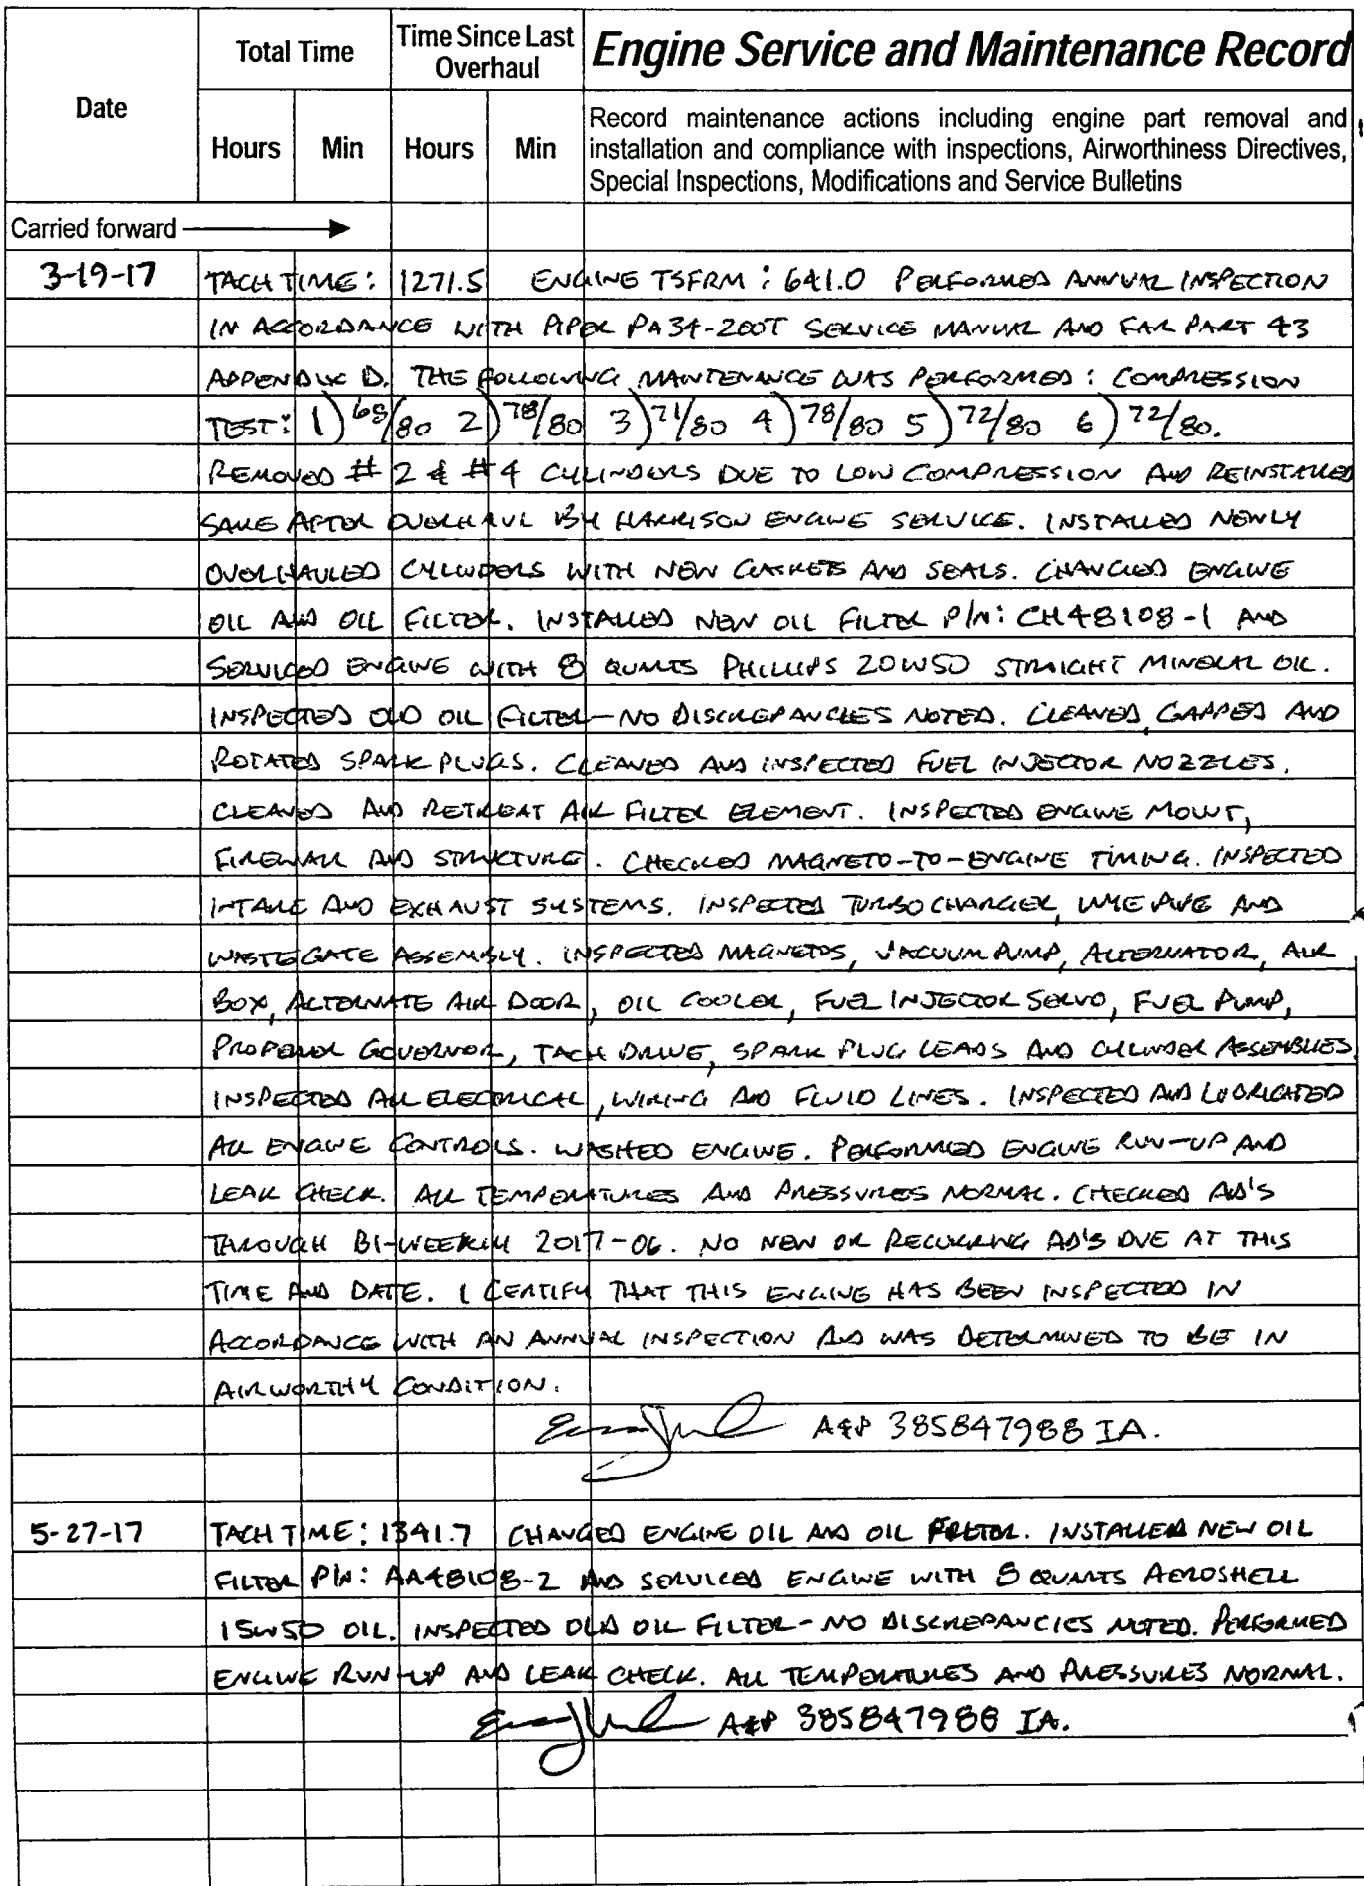 Date
Total Time
Time Since Last Overhaul
Engine Service and Maintenance Record
Hours Min Hours Min
Record maintenance actions including engine part removal and
installation and compliance with inspections, Airworthiness Directives,
Special Inspections, Modifications and Service Bulletins
Carried forward
3-19-17 TACH TIME: 1271.5 ENGINE TSFRM: 641.0 PERFORMED ANNUAL INSPECTION
IN ACCORDANCE WITH PIPER PA34-200T SERVICE MANUAL AND FAR PART 43
APPENDIX D. THE FOLLOWING MAINTENANCE WAS PERFORMED: COMPRESSION
TEST: 1) 68/80 2) 78/80 3) 71/80 4) 78/80 5) 72/80 6) 72/80.
REMOVED #2 & #4 CYLINDERS DUE TO LOW COMPRESSION AND REINSTALLED
SAME AFTER OVERHAUL BY HARRISON ENGINE SERVICE. INSTALLED NEWLY
OVERHAULED CYLINDERS WITH NEW GASKETS AND SEALS. CHANGED ENGINE
OIL AND OIL FILTER. INSTALLED NEW OIL FILTER P/N: CH48108-1 AND
SERVICED ENGINE WITH 8 QUARTS PHILLIPS 20W50 STRAIGHT MINERAL OIL.
INSPECTED OLD OIL FILTER-NO DISCREPANCIES NOTED. CLEANED, GAPPED AND
ROTATED SPARK PLUGS. CLEANED AND INSPECTED FUEL INJECTOR NOZZLES.
CLEANED AND RETREAT AIR FILTER ELEMENT. INSPECTED ENGINE MOUNT,
FIREWALL AND STRUCTURE. CHECKED MAGNETO-TO-ENGINE TIMING. INSPECTED
INTAKE AND EXHAUST SYSTEMS. INSPECTED TURBOCHARGER, WYE PIPE AND
WASTEGATE ASSEMBLY. INSPECTED MAGNETOS, VACUUM PUMP, ALTERNATOR, AIR
BOX, ALTERNATE AIR DOOR, OIL COOLER, FUEL INJECTOR SERVO, FUEL PUMP,
PROPELLER GOVERNOR, TACH DRIVE, SPARK PLUG LEADS AND CYLINDER ASSEMBLIES.
INSPECTED ALL ELECTRICAL, WIRING AND FLUID LINES. INSPECTED AND LUBRICATED
ALL ENGINE CONTROLS. WASHED ENGINE. PERFORMED ENGINE RUN-UP AND
LEAK CHECK. ALL TEMPERATURES AND PRESSURES NORMAL. CHECKED AD'S
THROUGH BI-WEEKLY 2017-06. NO NEW OR RECURRING AD'S DUE AT THIS
TIME AND DATE. I CERTIFY THAT THIS ENGINE HAS BEEN INSPECTED IN
ACCORDANCE WITH AN ANNUAL INSPECTION AND WAS DETERMINED TO BE IN
AIRWORTHY CONDITION.
A&P 385847988 IA.
5-27-17 TACH TIME: 1341.7 CHANGED ENGINE OIL AND OIL FILTER. INSTALLED NEW OIL
FILTER P/N: AA48108-2 AND SERVICED ENGINE WITH 8 QUARTS AEROSHELL
15W50 OIL. INSPECTED OLD OIL FILTER-NO DISCREPANCIES NOTED. PERFORMED
ENGINE RUN-UP AND LEAK CHECK. ALL TEMPERATURES AND PRESSURES NORMAL.
A&P 385847988 IA.